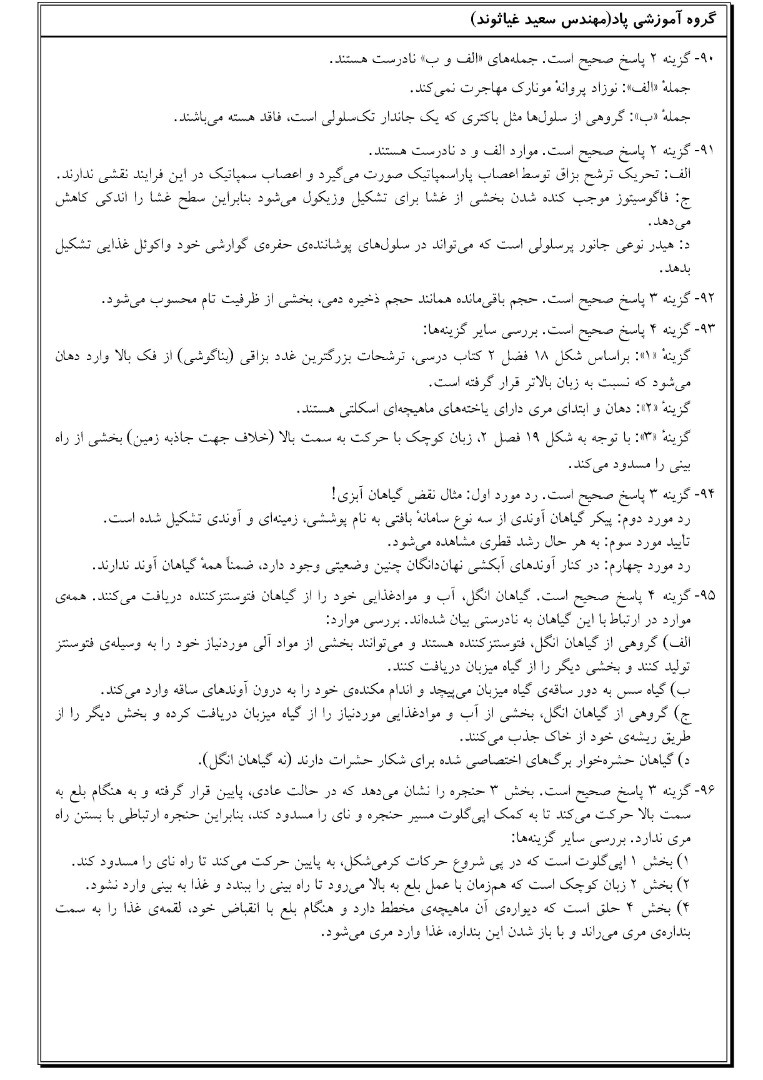 گروه آموزشی پاد(مهندس سعید غیاثوند)
۹۰- گزینه ۲ پاسخ صحیح است. جمله‌های «الف و ب» نادرست هستند.
جملهٔ «الف»: نوزاد پروانهٔ مونارک مهاجرت نمی‌کند.
جملهٔ «ب»: گروهی از سلول‌ها مثل باکتری که یک جاندار تک‌سلولی است، فاقد هسته می‌باشند.
۹۱- گزینه ۲ پاسخ صحیح است. موارد الف و د نادرست هستند.
الف: تحریک ترشح بزاق توسط اعصاب پاراسمپاتیک صورت می‌گیرد و اعصاب سمپاتیک در این فرایند نقشی ندارند.
ج: فاگوسیتوز موجب کنده شدن بخشی از غشا برای تشکیل وزیکول می‌شود بنابراین سطح غشا را اندکی کاهش
می‌دهد.
د: هیدر نوعی جانور پرسلولی است که می‌تواند در سلول‌های پوشاننده‌ی حفره‌ی گوارشی خود واکوئل غذایی تشکیل
بدهد.
۹۲- گزینه ۳ پاسخ صحیح است. حجم باقی‌مانده همانند حجم ذخیره دمی، بخشی از ظرفیت تام محسوب می‌شود.
۹۳- گزینه ۴ پاسخ صحیح است. بررسی سایر گزینه‌ها:
گزینهٔ «۱»: براساس شکل ۱۸ فضل ۲ کتاب درسی، ترشحات بزرگترین غدد بزاقی (بناگوشی) از فک بالا وارد دهان
می‌شود که نسبت به زبان بالاتر قرار گرفته است.
گزینهٔ «۲»: دهان و ابتدای مری دارای یاخته‌های ماهیچه‌ای اسکلتی هستند.
گزینهٔ «۳»: با توجه به شکل ۱۹ فصل ۲، زبان کوچک با حرکت به سمت بالا (خلاف جهت جاذبه زمین) بخشی از راه
بینی را مسدود می‌کند.
۹۴- گزینه ۳ پاسخ صحیح است. رد مورد اول: مثال نقض گیاهان آبزی!
رد مورد دوم: پیکر گیاهان آوندی از سه نوع سامانهٔ بافتی به نام پوششی، زمینه‌ای و آوندی تشکیل شده است.
تأیید مورد سوم: به هر حال رشد قطری مشاهده می‌شود.
رد مورد چهارم: در کنار آوندهای آبکشی نهان‌دانگان چنین وضعیتی وجود دارد، ضمناً همهٔ گیاهان آوند ندارند.
۹۵- گزینه ۴ پاسخ صحیح است. گیاهان انگل، آب و موادغذایی خود را از گیاهان فتوسنتزکننده دریافت می‌کنند. همه‌ی
موارد در ارتباط با این گیاهان به نادرستی بیان شده‌اند. بررسی موارد:
الف) گروهی از گیاهان انگل، فتوسنتزکننده هستند و می‌توانند بخشی از مواد آلی موردنیاز خود را به وسیله‌ی فتوسنتز
تولید کنند و بخشی دیگر را از گیاه میزبان دریافت کنند.
ب) گیاه سس به دور ساقه‌ی گیاه میزبان می‌پیچد و اندام مکنده‌ی خود را به درون آوندهای ساقه وارد می‌کند.
ج) گروهی از گیاهان انگل، بخشی از آب و موادغذایی موردنیاز را از گیاه میزبان دریافت کرده و بخش دیگر را از
طریق ریشه‌ی خود از خاک جذب می‌کنند.
د) گیاهان حشره‌خوار برگ‌های اختصاصی شده برای شکار حشرات دارند (نه گیاهان انگل).
۹۶- گزینه ۳ پاسخ صحیح است. بخش ۳ حنجره را نشان می‌دهد که در حالت عادی، پایین قرار گرفته و به هنگام بلع به
سمت بالا حرکت می‌کند تا به کمک اپی‌گلوت مسیر حنجره و نای را مسدود کند، بنابراین حنجره ارتباطی با بستن راه
مری ندارد. بررسی سایر گزینه‌ها:
۱) بخش ۱ اپی‌گلوت است که در پی شروع حرکات کرمی‌شکل، به پایین حرکت می‌کند تا راه نای را مسدود کند.
۲) بخش ۲ زبان کوچک است که هم‌زمان با عمل بلع به بالا می‌رود تا راه بینی را ببندد و غذا به بینی وارد نشود.
۴) بخش ۴ حلق است که دیواره‌ی آن ماهیچه‌ی مخطط دارد و هنگام بلع با انقباض خود، لقمه‌ی غذا را به سمت
بنداره‌ی مری می‌راند و با باز شدن این بنداره، غذا وارد مری می‌شود.